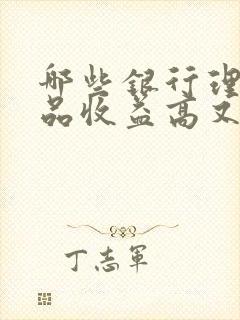 哪些银行理
品收益高又
丁志军